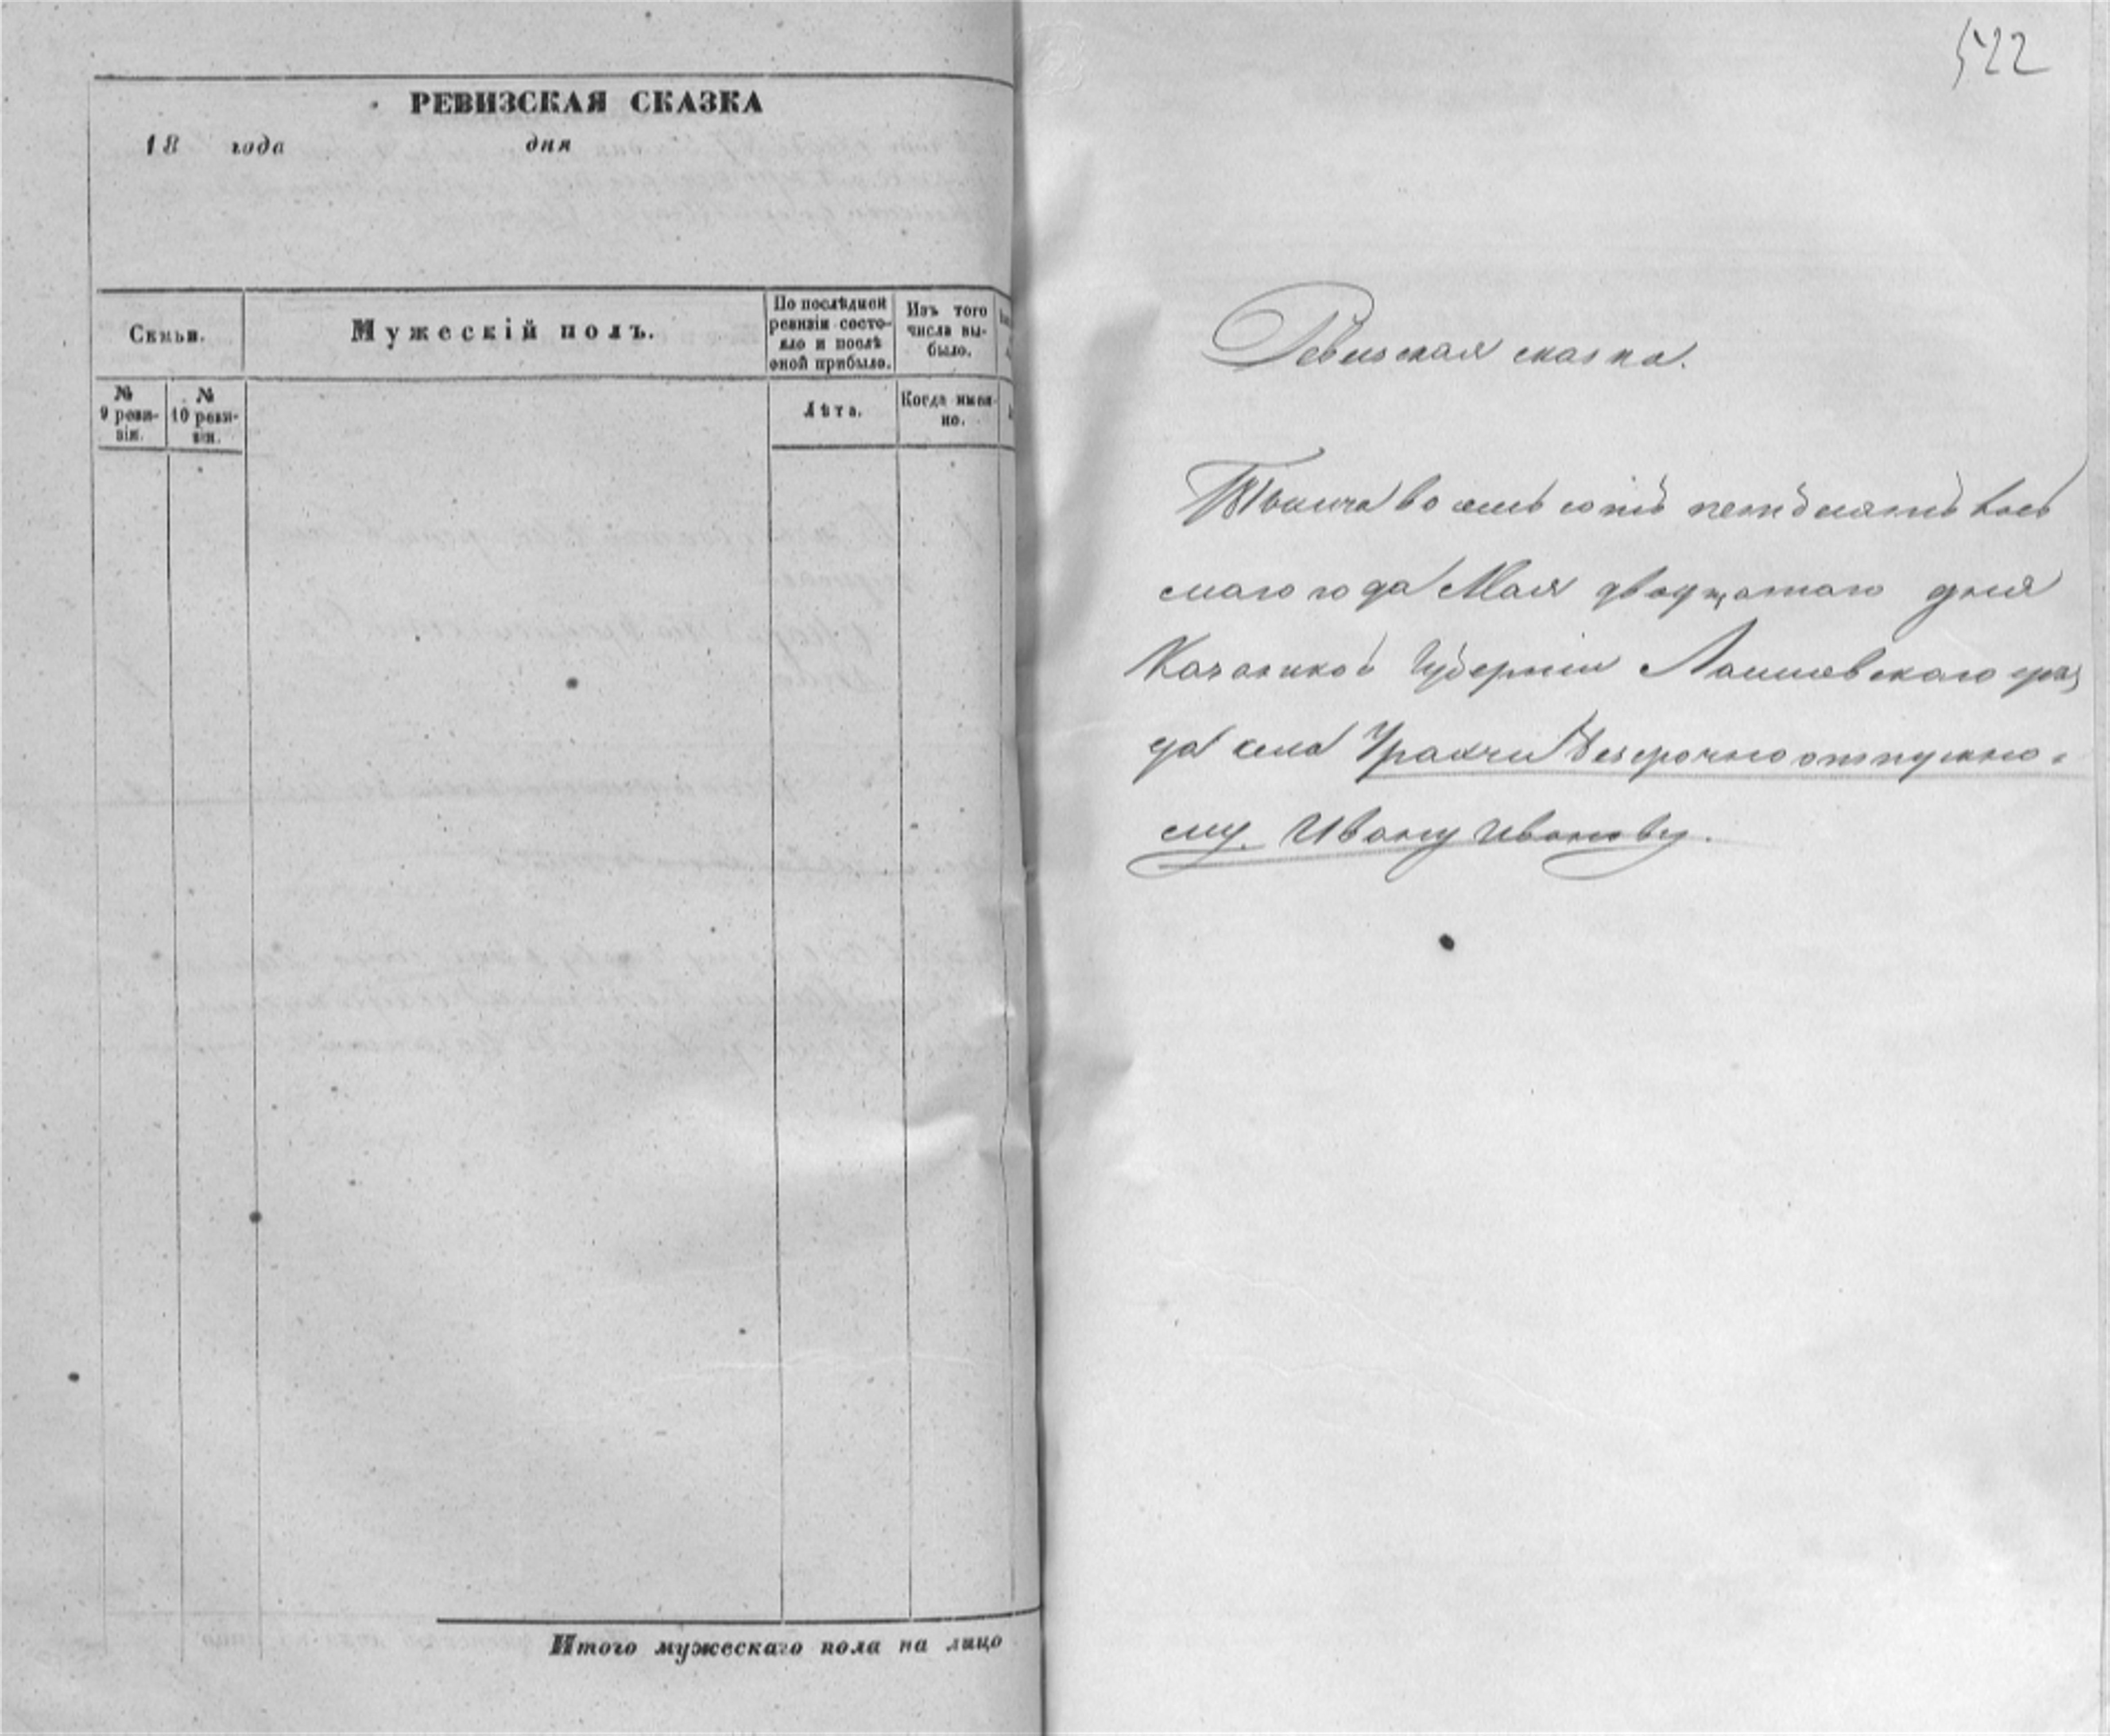 РЕВИЗСКАЯ СКАЗКА
18 года дня
Семьи.
Мужескій полъ.
По послѣдней
ревизіи состо-
яло и послѣ
оной прибыло.
Изъ того
числа вы-
было.
№
9 реви-
зіи.
№
10 реви-
зіи.
Лѣта.
Когда имен-
но.
Итого мужескаго пола на лицо
522
Ревизская сказка.
Тысяча восемь сотъ пятдесятъ вось
маго года Мая двадцатаго дня
Казанской Губерніи Лаишевскаго уѣз
да села Урахчи безсрочно отпускно-
му Ивану Иванову.